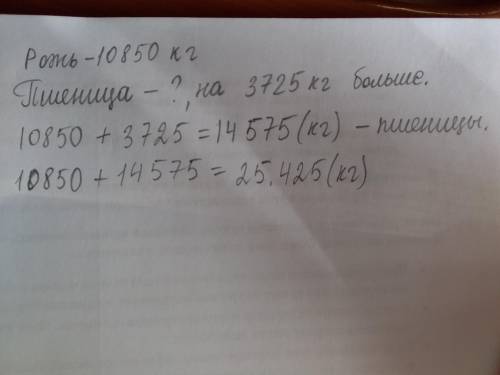 Рожь - 10850 кг
Пшеница - ?, на 3725 кг больше.
10850 + 3725 = 14575 (кг) - пшеницы.
10850 + 14575 = 25.425 (кг)